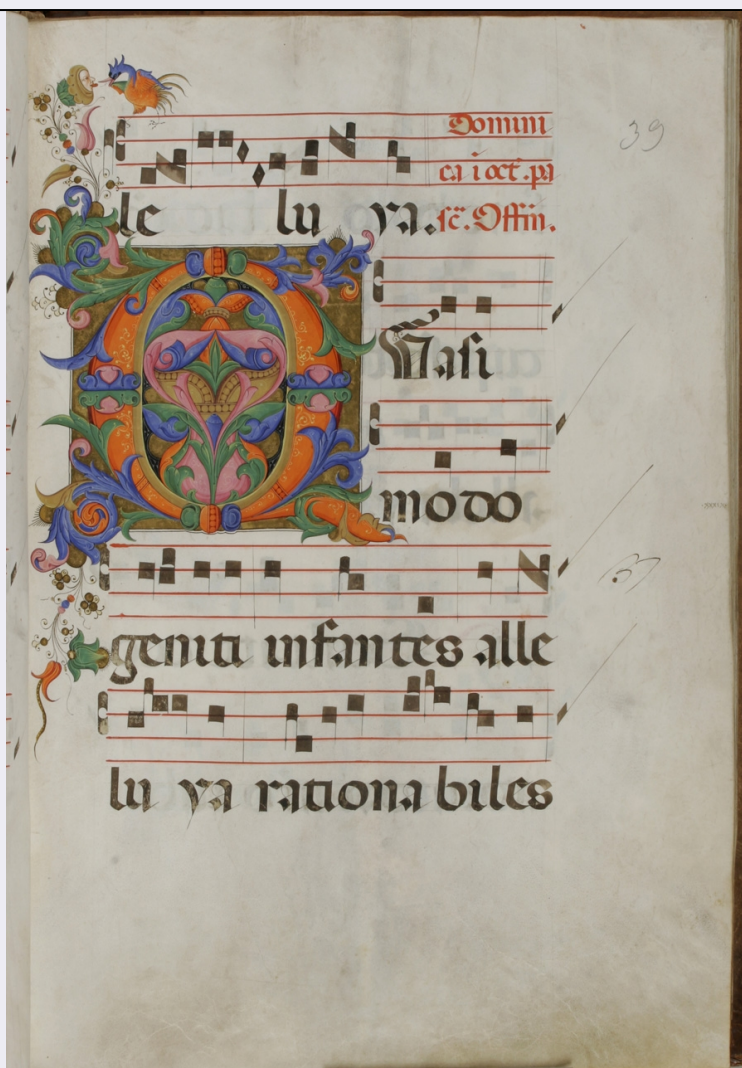 39
Domini
ca i oct. pa
le lu ya. sc̄. Offiı̄.
Quasi
modo
geniti infantes alle
lu ya rationabiles